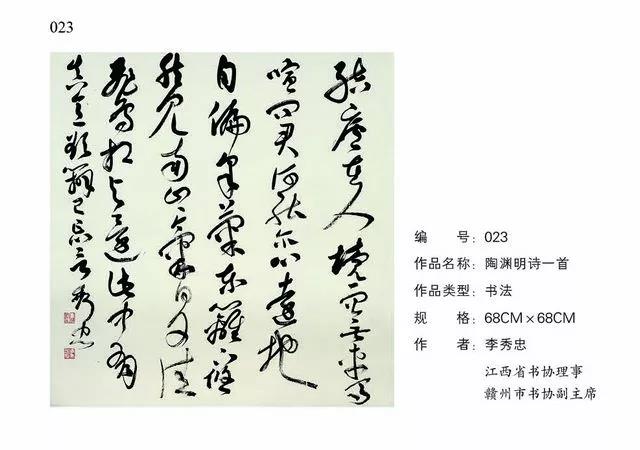 023
結廬在人境而無車馬
喧問君何能爾心遠地
自偏采菊東籬下悠
然見南山山氣日夕佳
飛鳥相與還此中有
真意欲辨已忘言秀忠
编 号：023
作品名称：陶渊明诗一首
作品类型：书法
规 格：68CM×68CM
作 者：李秀忠
江西省书协理事
赣州市书协副主席